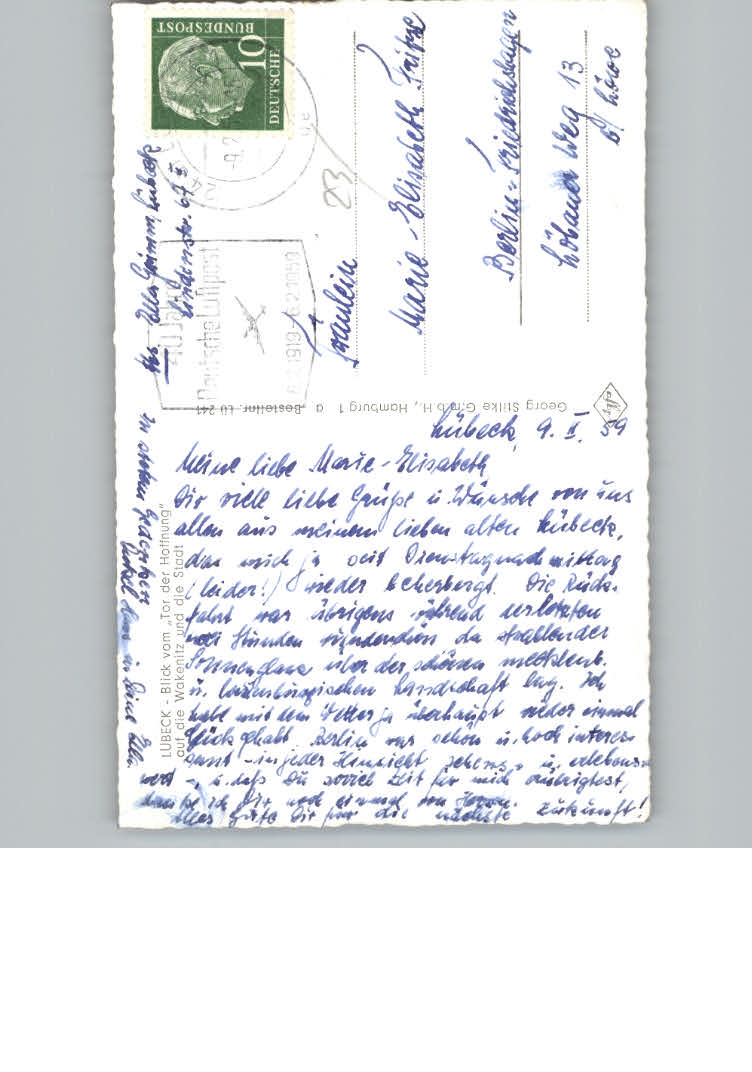 DEUTSCHE
BUNDESPOST
10
23
40 Jahre
Deutsche Luftpost
1919 - 6.2.1959
Lindenstr. 67
Fräulein
Marie-Elisabeth Fritze
Berlin-Friedrichshagen
Löbauer Weg 13
b/ Löwe
Georg Stilke G.m.b.H., Hamburg 1 a Bestellnr. Lü 241
LÜBECK - Blick vom „Tor der Hoffnung"
auf die Wakenitz und die Stadt
Lübeck, 9. II. 59
Meine liebe Marie-Elisabeth
Dir viele liebe Grüße u. Wünsche von uns
allen aus meinem lieben alten Lübeck,
das mich ja seit Dienstagnachmittag
(leider!) wieder beherbergt. Die Rück-
fahrt war übrigens während der letzten
zwei Stunden wunderschön da strahlender
Sonnenglanz über der schönen mecklenb.
u. lauenburgischen Landschaft lag. Ich
habe mit dem Wetter ja überhaupt wieder einmal
Glück gehabt. Berlin war schön u. hoch interes-
sant - in jeder Hinsicht sehens- u. erlebens-
wert -, u. daß Du soviel Zeit für mich
danke ich Dir noch einmal von Herzen.
Alles Gute Dir für die nächste Zukunft!
In stetem Gedenken
Deine Ella